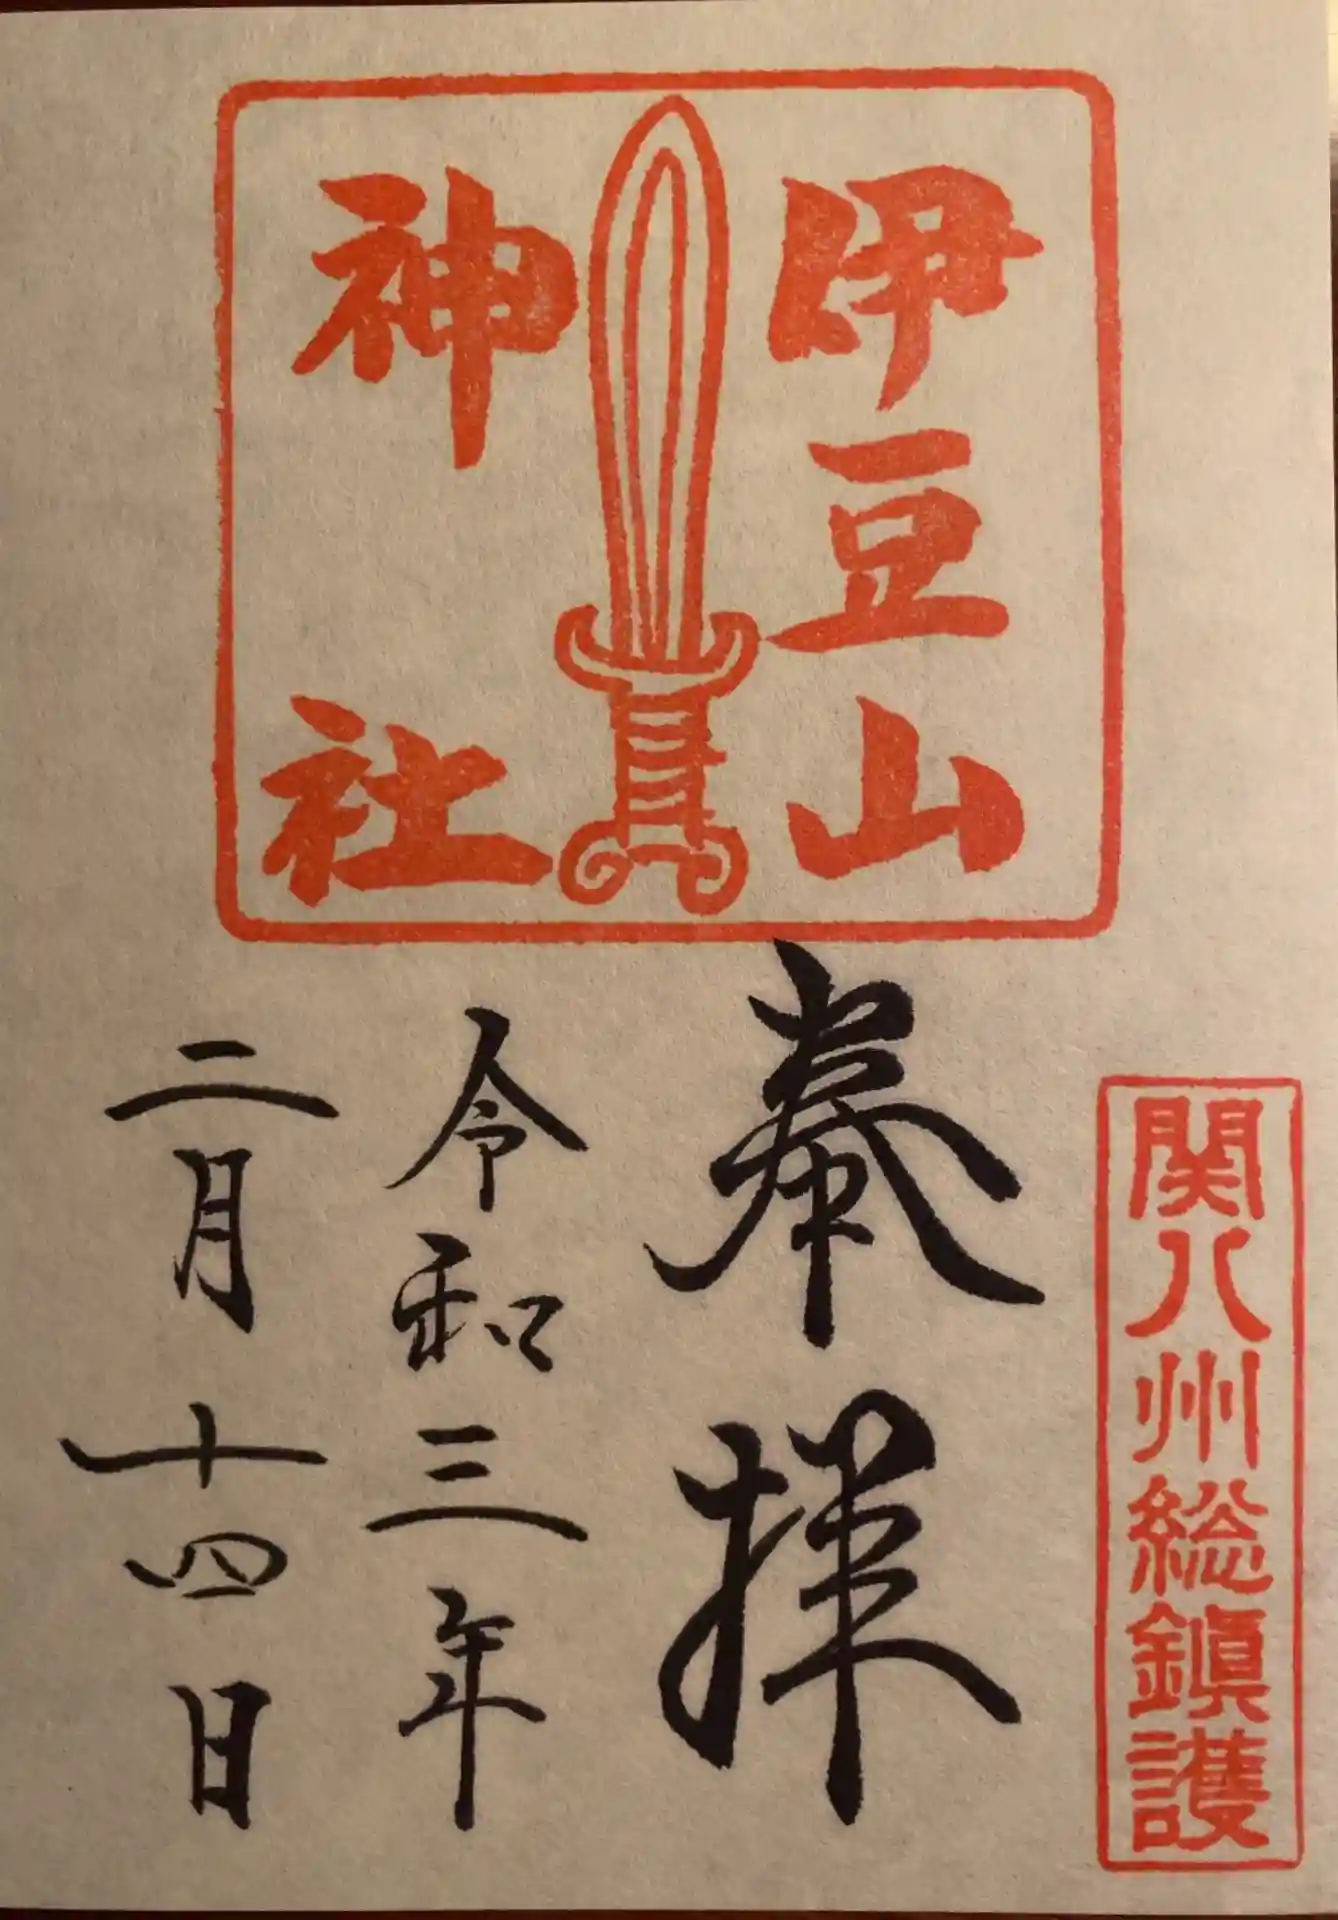 伊豆山
神社
関八州総鎮護
奉拝
令和三年
二月十四日